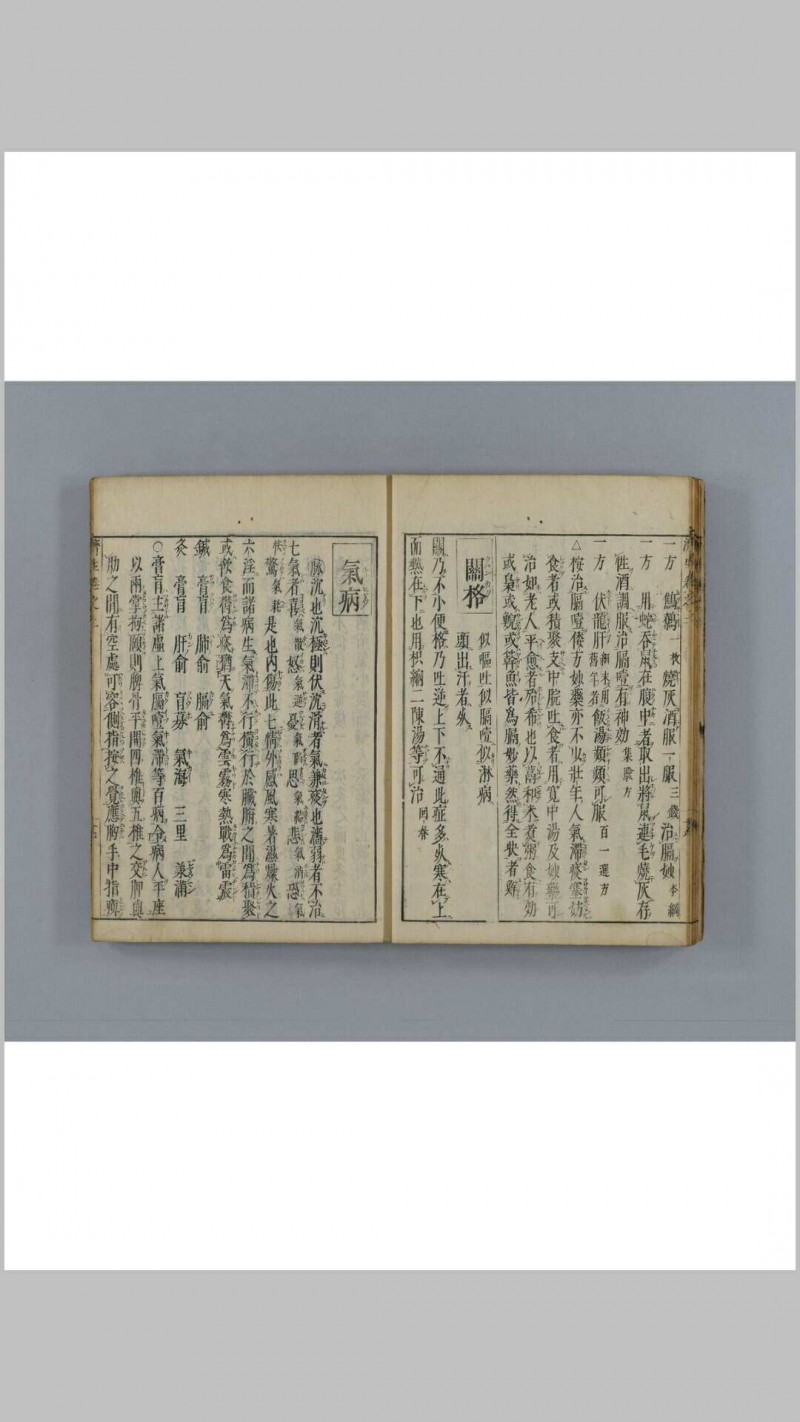 一方 鷓鴣一枚燒灰酒服一服三錢治膈噎本綱
一方 用蛇吞鼠在腹中者取出將鼠連毛燒灰存
性酒調服治膈噎有神効集驗方
一方 伏龍肝細末用舊竿若飯湯頻頻可服百一選方
△按治膈噎倭方妙藥亦不少壯年人氣滯痰塞妨
食者或積聚支中脘吐食者用寬中湯及妙藥可
治如老人平愈者殆希也以蒿和米煮粥食有効
或梟或
魚皆爲膈妙藥然得全快者鮮
關格
似嘔吐似膈噎似淋病
頭出汗者死
關乃不小便格乃吐逆上下不通此症多死寒在上
面熱在下也用枳縮二陳湯等可治回春
氣病
脉沉也沉極則伏沉滑者氣兼痰也濡弱者不治
七氣者喜氣散怒氣逆憂氣 思氣結悲氣消恐氣
怯驚氣耗是也内傷此七情外感風寒暑濕燥火之
六淫而諸病生氣滯不行橫行於臟腑之間爲積聚
或飲食滯爲痰猶天氣鬱爲雲霧寒熱戰爲雷震
鍼 膏肓 肺俞 膈俞
灸 膏肓 肝俞 肓募 氣海 三里 兼滿
○膏肓主諸虛上氣膈噎氣滯等百病令病人平座
以兩掌拘頤則脾骨平開四椎與五椎之交胛與
肋之間有空處可容側指按之覺應胸手中指痺